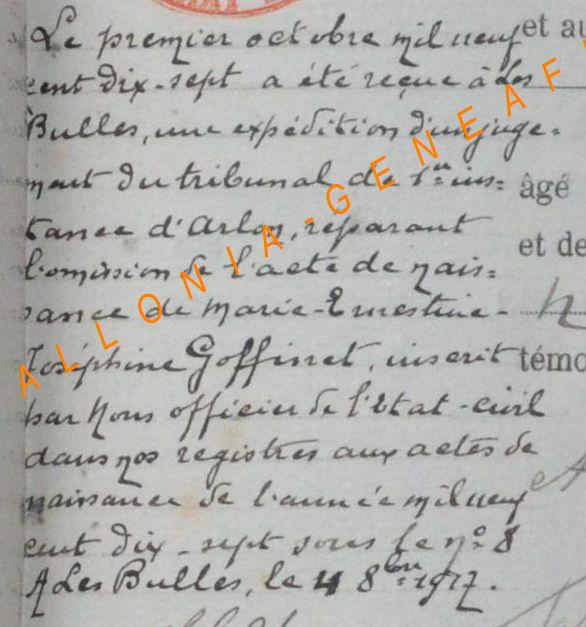 Le premier octobre mil neuf
cent dix-sept a été reçue à Les
Bulles, une expédition d'un juge=
ment du tribunal de 1re ins=
tance d'Arlon, réparant
l'omission de l'acte de nais=
sance de Marie-Ernestine-
Joséphine Goffinet, inscrit
par Nous officier de l'Etat-civil
dans nos registres aux actes de
naissance de l'année mil neuf
cent dix-sept sous le no 8
A Les Bulles, le 4 8bre 1917.
et au
âgé
et de
témo
ALLONIA-GENEAF